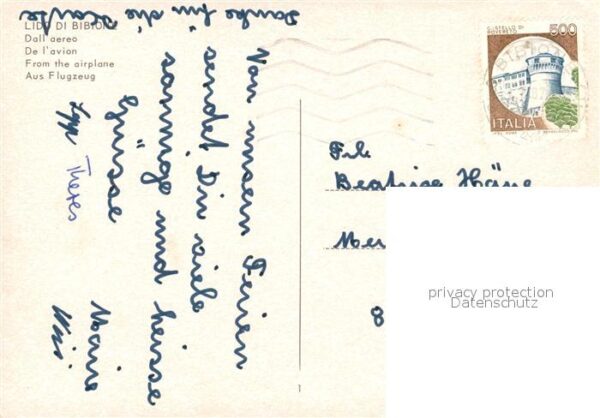 LIDO DI BIBIONE
Dall'aereo
De l'avion
From the airplane
Aus Flugzeug
Danke für die Karte
Von unsern Ferien
sendet Dir viele
sonnige und heisse
Grüsse
Marie
Theres
500
CASTELLO DI
ROVERETO
ITALIA
Frl.
Beatrice Häne
Mer
8
privacy protection
Datenschutz